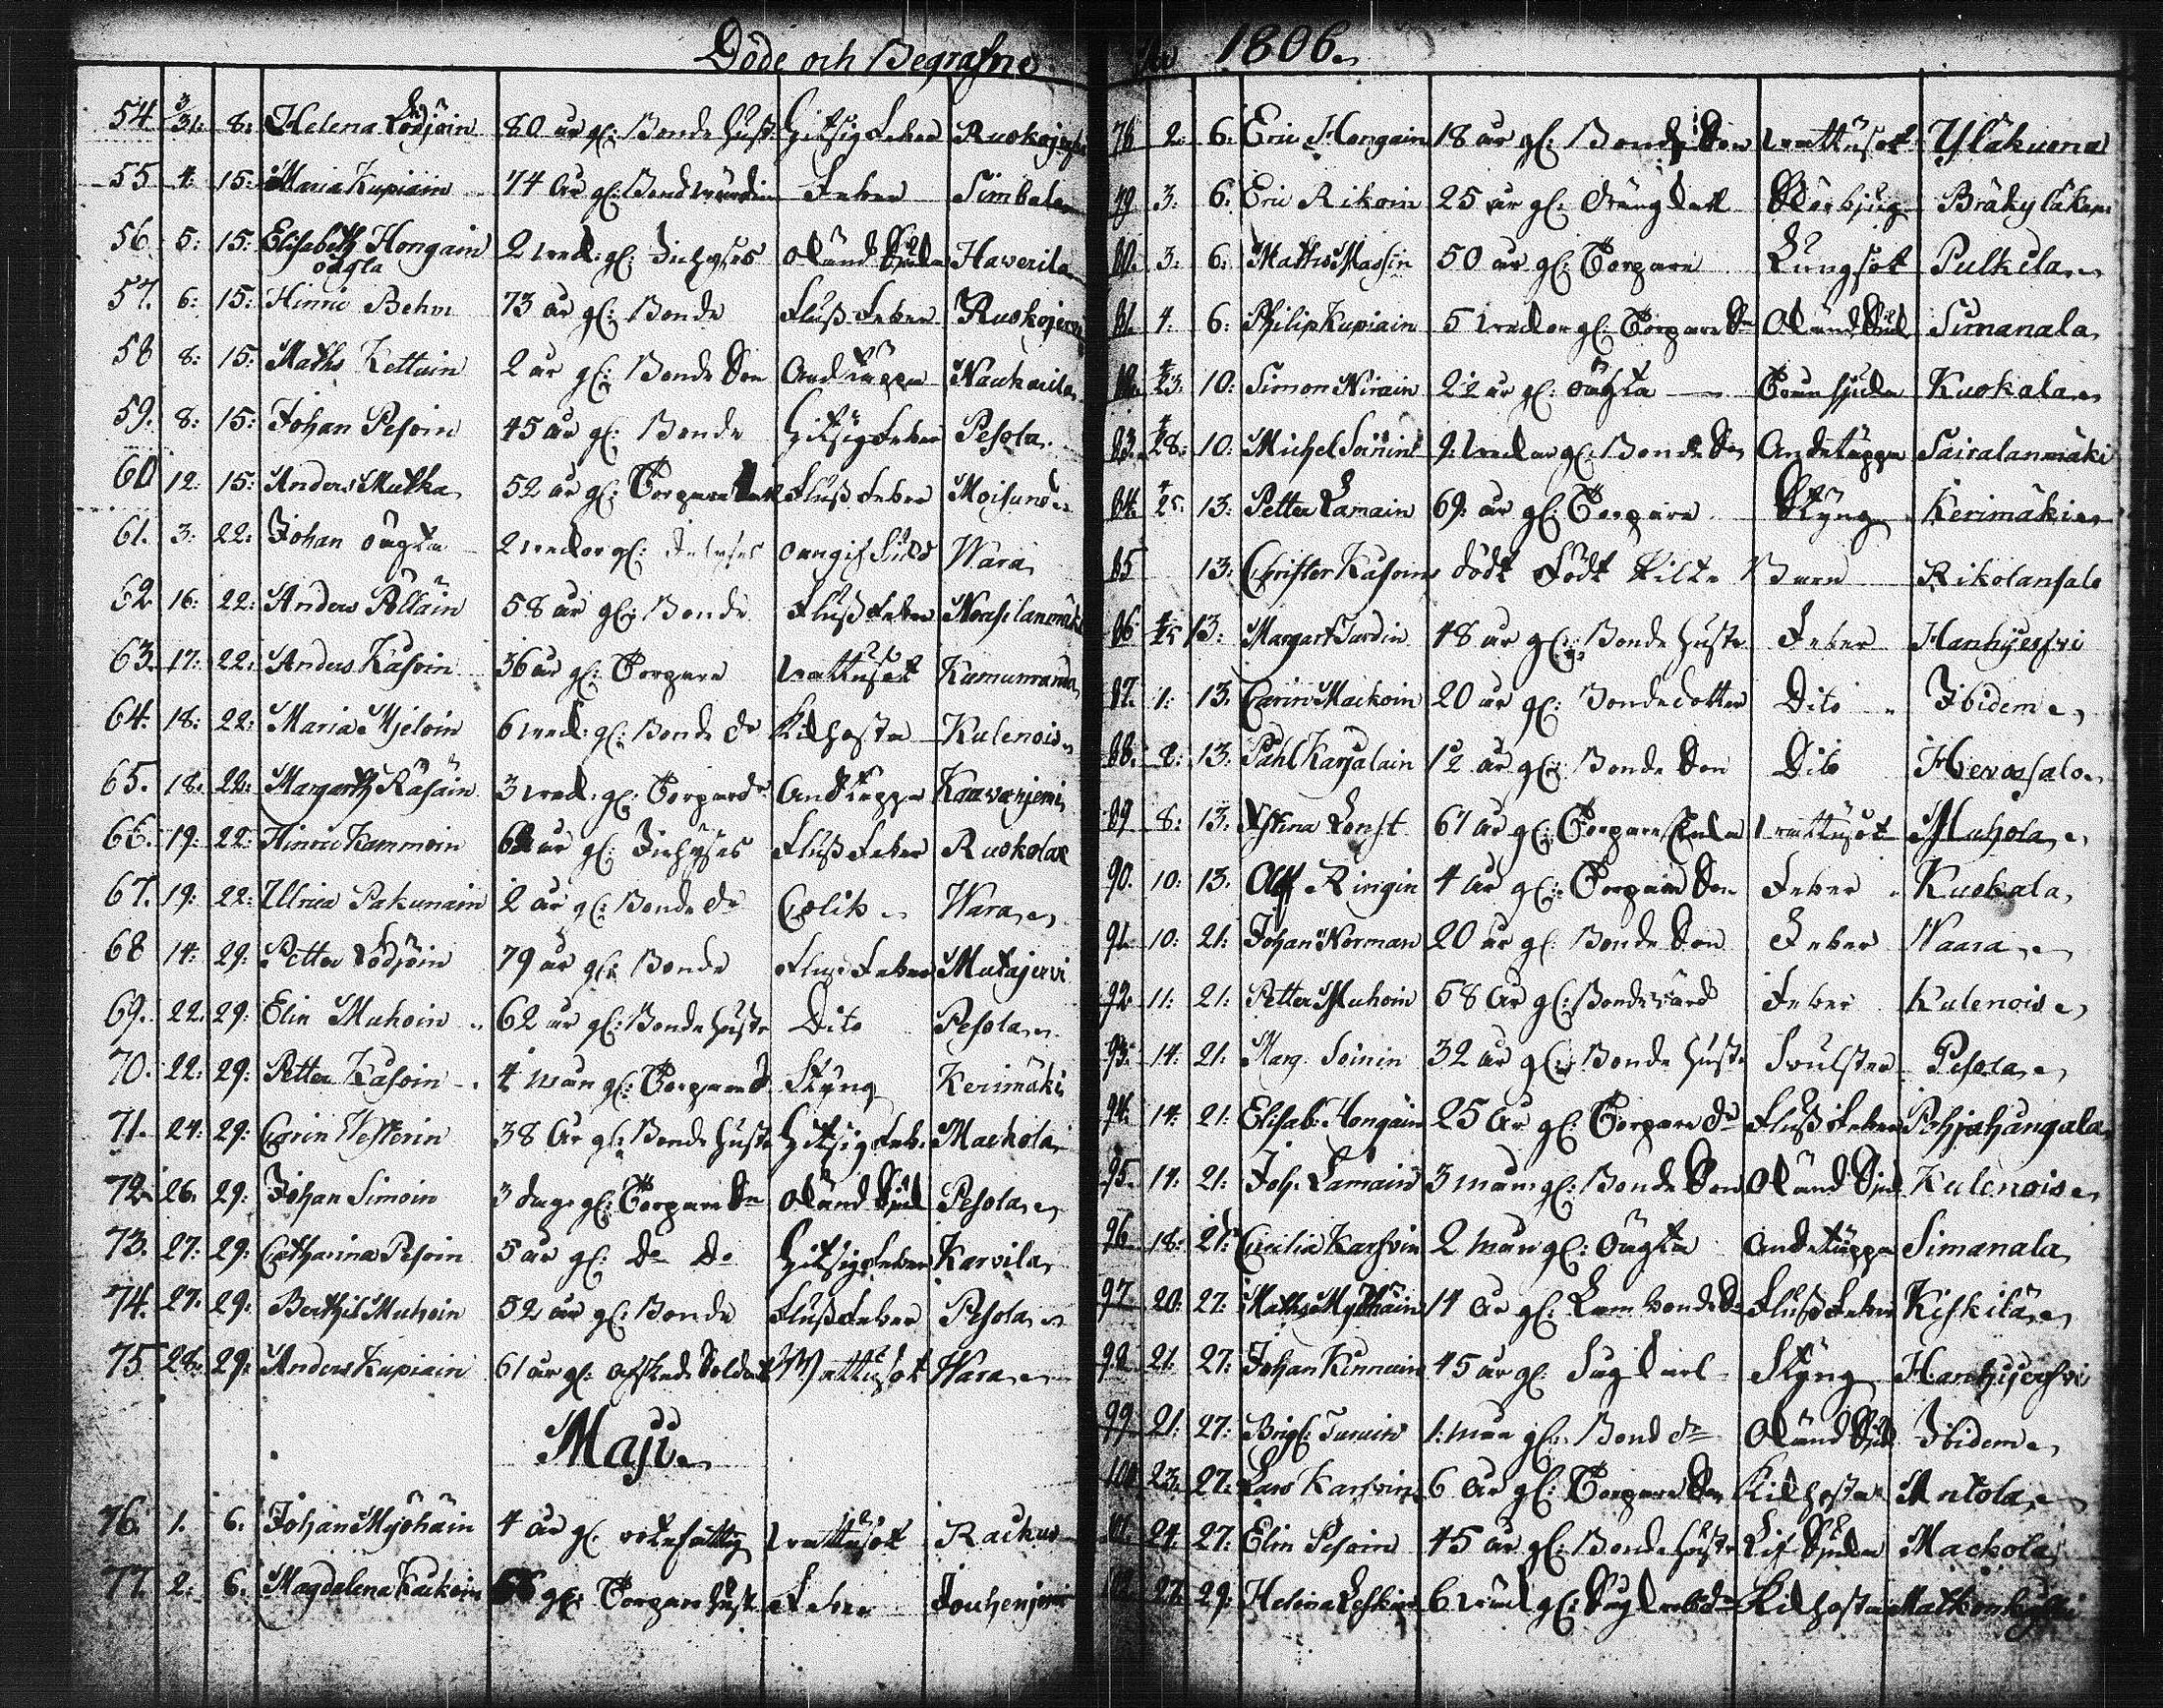 Döde och Begrafne
År 1806
54 3/31: 8: Helena Lödjöin 80 år gl: Bonde Hust: Hitsig Feber Ruokojervi
55 4: 15: Maria Kupiain 74 år gl: Feber Simbala
56 5: 15: Elisabeth Hongain 2 gl: Inhyses Okänd Sjukd Haverila
oägta
57. 6: 15: Hinric Behm 73 år gl: Bonde Fluss Feber Ruokojervi
58 8: 15: Maths Kettuin 2 år gl: Bonde Son Andtäppa Naukuila
59. 8: 15: Johan Pesoin 45 år gl: Bonde Hitsig Feber Pesola
60 12: 15: Anders Mutka 52 år gl: Torpare Fluss Feber Moisund
61. 3: 22: Johan oägta 2 veckor gl: Wara
62 16: 22: Anders Pölläin 58 år gl: Bonde Fluss Feber
63. 17: 22: Anders Käsoin 36 år gl: Torpare Wattusot
64. 18: 22: Maria Mjeloin 6 veck: gl: Bonde dr Kikhosta Kulenois
65. 18: 22: Margareth Räsäin 3 veck: gl: Torpare dr Andtäppa Kaavanjemi
66. 19: 22: Hinric Kammoin år gl: Inhyses Fluss Feber Ruokolax
67. 19: 22: Ulrica Pakunain 2 år gl: Bonde dr Colik Wara
68 14: 29: Petter Lödjöin 79 år gl: Bonde Fluss Feber Mutajervi
69. 22. 29: Elin Muhoin 62 år gl: Bonde Hustr Dito Pesola
70. 22: 29: Petter Käsoin 4 mån gl: Torpare S Styng Kerimäki
71. 24: 29: Carin Westerin 38 år gl: Bonde Hustr Hitsig Feb. Mackola
72. 26. 29: Johan Simoin 3 dagr gl: Torpare Sn Okänd Sjuk Pesola
73. 27: 29: Catharina Pesoin 5 år gl: Do Do Hitsig Feber Karvila
74. 27. 29: Berthil Muhoin 52 år gl: Bonde Fluss Feber Pesola
75 28. 29: Anders Kupiain 61 år gl: Afsked Soldat Wattusot Wara
Maji
76. 1. 6. Johan Myöhäin 4 år gl. rotefattig Wattusot Rackus
77. 2: 6. Magdalena gl: Torpare Hust Feber Jouhenjemi
78 2: 6: Eric Hongain 18 år gl: Bonde Son Wattusot Yläkuona
79 3: 6: Eric Rikoin 25 år gl: Drängkarl Skörbjugg Bräkylä
80. 3: 6: Maths Massin 50 år gl: Torpare Lungsot Pulkila
81. 4: 6: Philip Kupiain 5 veckor gl: Torpare Sn Okänd Sjuk Simanala
82. 4/23: 10: Simon Nirain 22 år gl: oägta Kuokala
83. 4/28: 10: Michel Soinin 9 veckor gl: Bonde Son Andetäppa Sairalanmäki
84. 4/25: 13: Petter Lamain 69: år gl: Torpare Styng Kerimäki
85 13: Christer Käsoins dödt Födt Barn Rikolansalo
86 4/25 13: Margaret 48 år gl: Bonde Hustr Feber
87. 1: 13. Carin Mackoin 20 år gl: Bonde dotter Dito Ibidem
88. 8: 13: Pahl Karjalain 12 år gl: Bonde Son Dito Hevossalo
89 8: 13: Stina Lenst 67 år gl: Torpare Enka Wattusot Muhola
90. 10: 13. Olof Ringin 4 år gl: Torpare Son Feber Kuokala
91. 10: 21: Johan Norman 20 år gl: Bonde Son Feber Waara
92. 11: 21: Petter Muhoin 58 år gl: Feber Kulenois
93. 14: 21. Marg. Soinin 32 år gl: Bonde Hustr Svulster Pesola
94. 14: 21: Elisab. Hongain 25 år gl: Torpare dr Fluss Feber Pohjahangala
95. 14: 21: Joh: Lamain 3 mån: gl: Bonde Son Okänd Sjuk Kulenois
96. 18: 21: Cecilia Karsoin 2 mån gl: Oägta Andetäppa Simanala
97. 20: 27: Maths Myöhäin 14 år gl: Fluss Feber Kiskilä
98. 21: 27: Johan Kinnuin 45 år gl: Styng
99. 21: 27: Brigt: 1: mån gl: Bond dr Okänd Sjuk Ibidem
100. 23: 27: Lars Karsoin 6 år gl: Torpare Son Kikhosta Antola
101. 24: 27: Elin Pesoin 45 år gl: Bonde Hustr Mackola
102. 27. 29: Helena 6 gl: Kikhosta